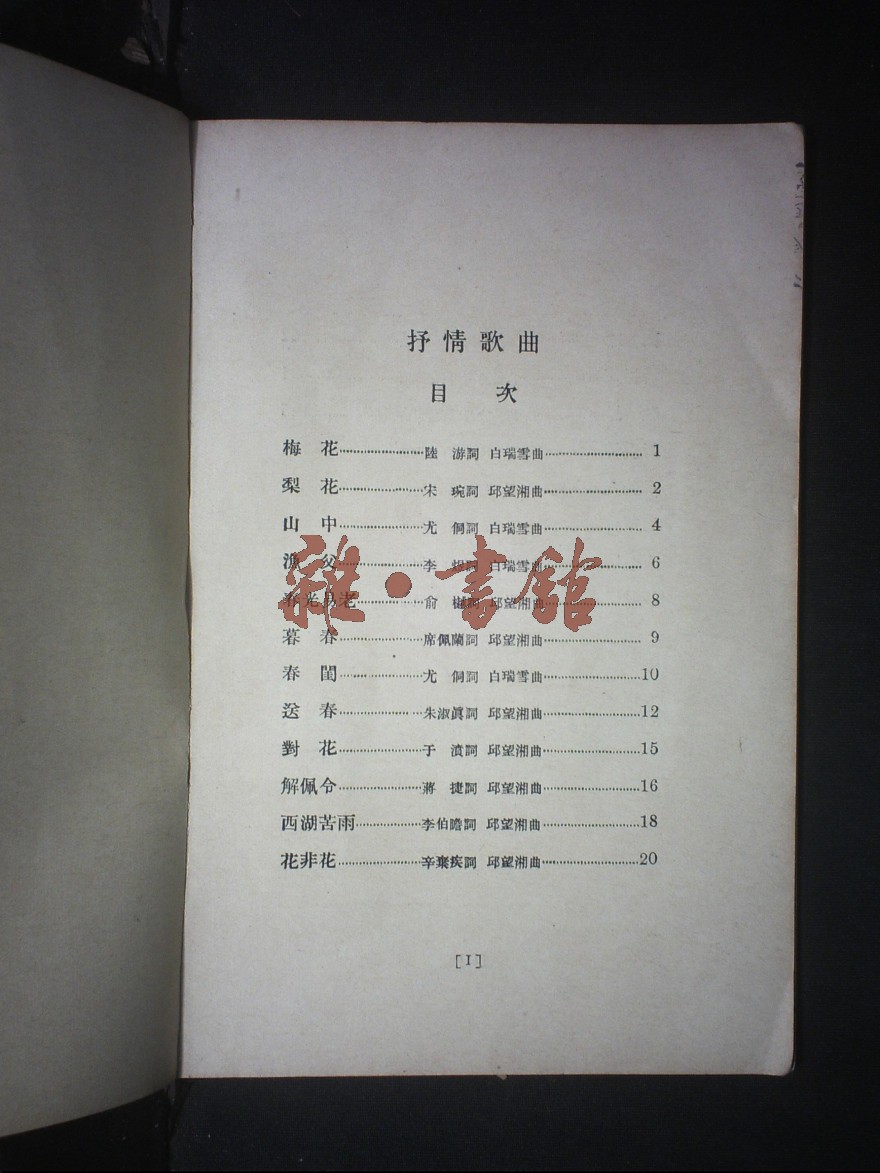 抒情歌曲
目 次
梅 花……………………陸 游詞 白瑞雪曲……………………1
梨 花……………………宋 琬詞 邱望湘曲……………………2
山 中……………………尤 侗詞 白瑞雪曲……………………4
漁 父……………………李 煜詞 白瑞雪曲……………………6
春光易老………………俞 樾詞 邱望湘曲……………………8
暮 春……………………席佩蘭詞 邱望湘曲……………………9
春 閨……………………尤 侗詞 白瑞雪曲……………………10
送 春……………………朱淑眞詞 邱望湘曲……………………12
對 花……………………于 濆詞 邱望湘曲……………………15
解佩令……………………蔣 捷詞 邱望湘曲……………………16
西湖苦雨………………李伯瞻詞 邱望湘曲……………………18
花非花……………………辛棄疾詞 邱望湘曲……………………20
[1]
雜·書館